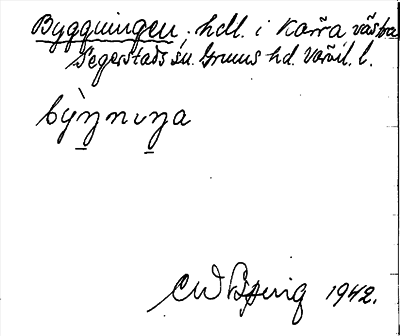 Byggningen, hdl. i Kärra västra
Segerstads sn. Grums hd. Värml. l.
bỳŋnıŋa
1942.